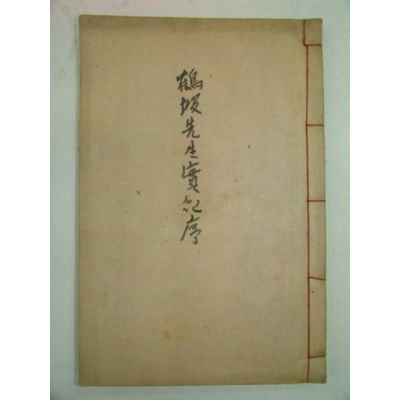 鶴坡先生實記序